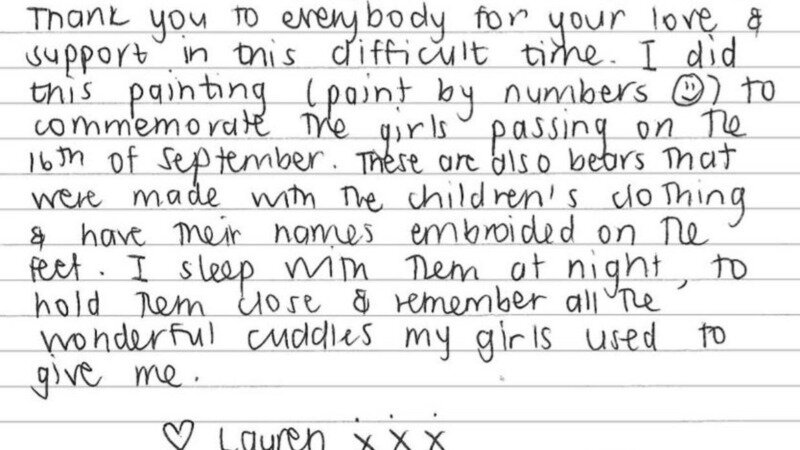 Thank you to everybody for your love &
support in this difficult time. I did
this painting (paint by numbers ☺) to
commemorate the girls passing on the
16th of September. These are also bears that
were made with the children's clothing
& have their names embroided on the
feet. I sleep with them at night, to
hold them close & remember all the
wonderful cuddles my girls used to
give me.
♡ Lauren x x x